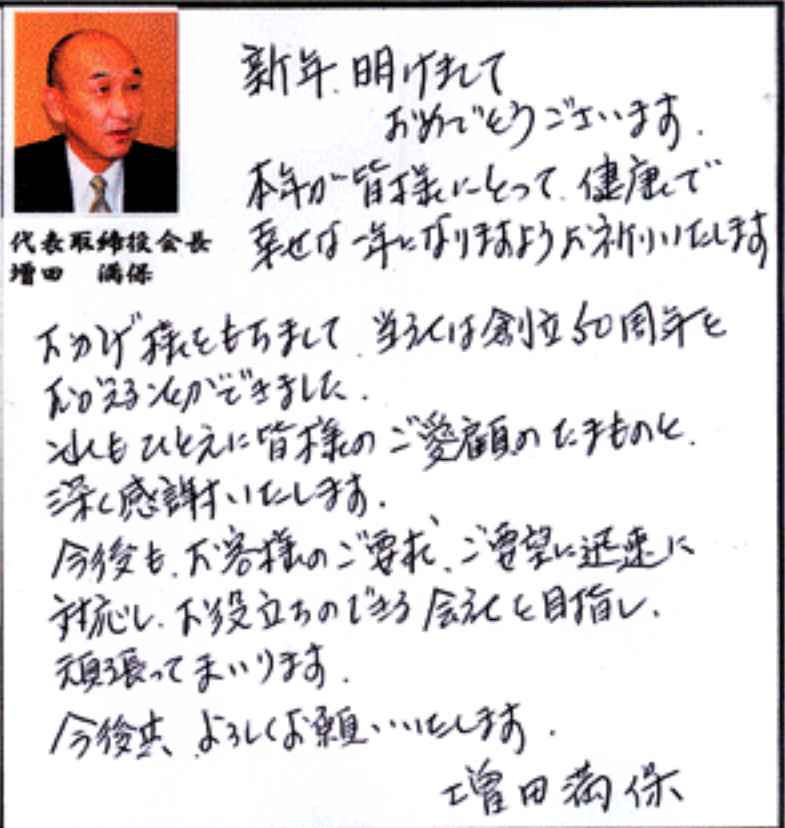 新年 明けまして
おめでとうございます.
本年が皆様にとって、健康で
幸せな一年になりますようお祈りいたします
代表取締役会長
増田 満保
おかげ様をもちまして、当社は創立50周年を
むかえることができました.
これもひとえに皆様のご愛顧のたまものと、
深く感謝いたします.
今後も、お客様のご要求、ご要望に迅速に
対応し、お役立ちのできる会社を目指し、
頑張ってまいります.
今後共、よろしくお願いいたします.
増田満保